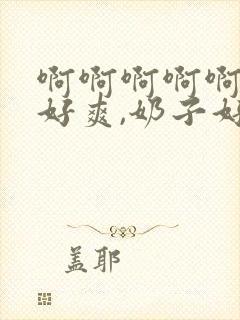 啊啊啊啊啊
好爽,奶子好
盖耶